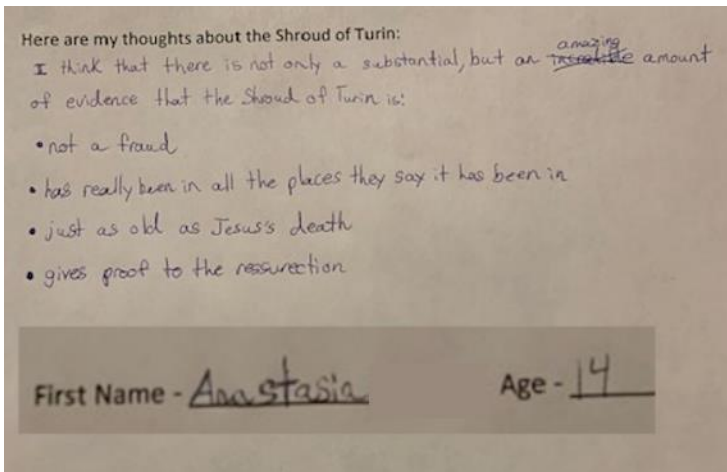 Here are my thoughts about the Shroud of Turin:
amazing
I think that there is not only a substantial, but an incredible amount
of evidence that the Shroud of Turin is:
• not a fraud
• has really been in all the places they say it has been in
• just as old as Jesus's death
• gives proof to the ressurection
First Name - Anastasia Age - 14